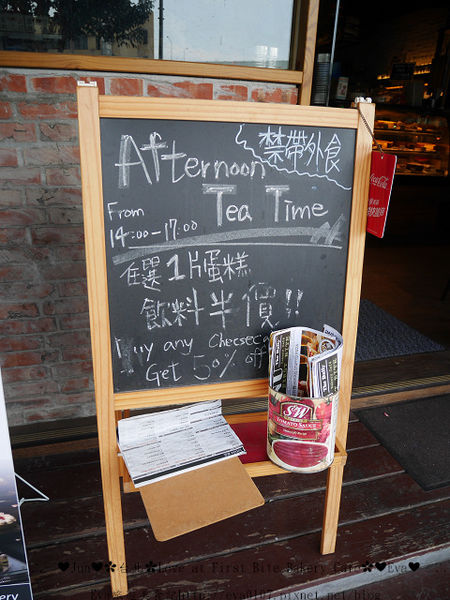 Afternoon
禁帶外食
Tea Time
From
14:00-17:00
任選1片蛋糕
飲料半價!!
Buy any Cheeseca
Get 50% off
Coca-Cola
S&W
TOMATO SAUCE
Love at First Bite Bakery Cafe